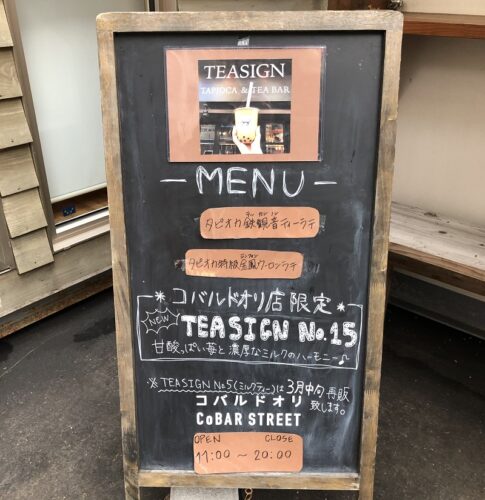 TEASIGN
TAPIOCA & TEA BAR
MENU
タピオカ鉄観音ティーラテ
タピオカ特級金萱ウーロンラテ
コバルドオリ店限定
NEW
TEASIGN No.15
甘酸っぱい苺と濃厚なミルクのハーモニー♪
※TEASIGN No5(ミルクティー)は3月中旬再販
致します。
コバルドオリ
CoBAR STREET
OPEN CLOSE
11:00 〜 20:00